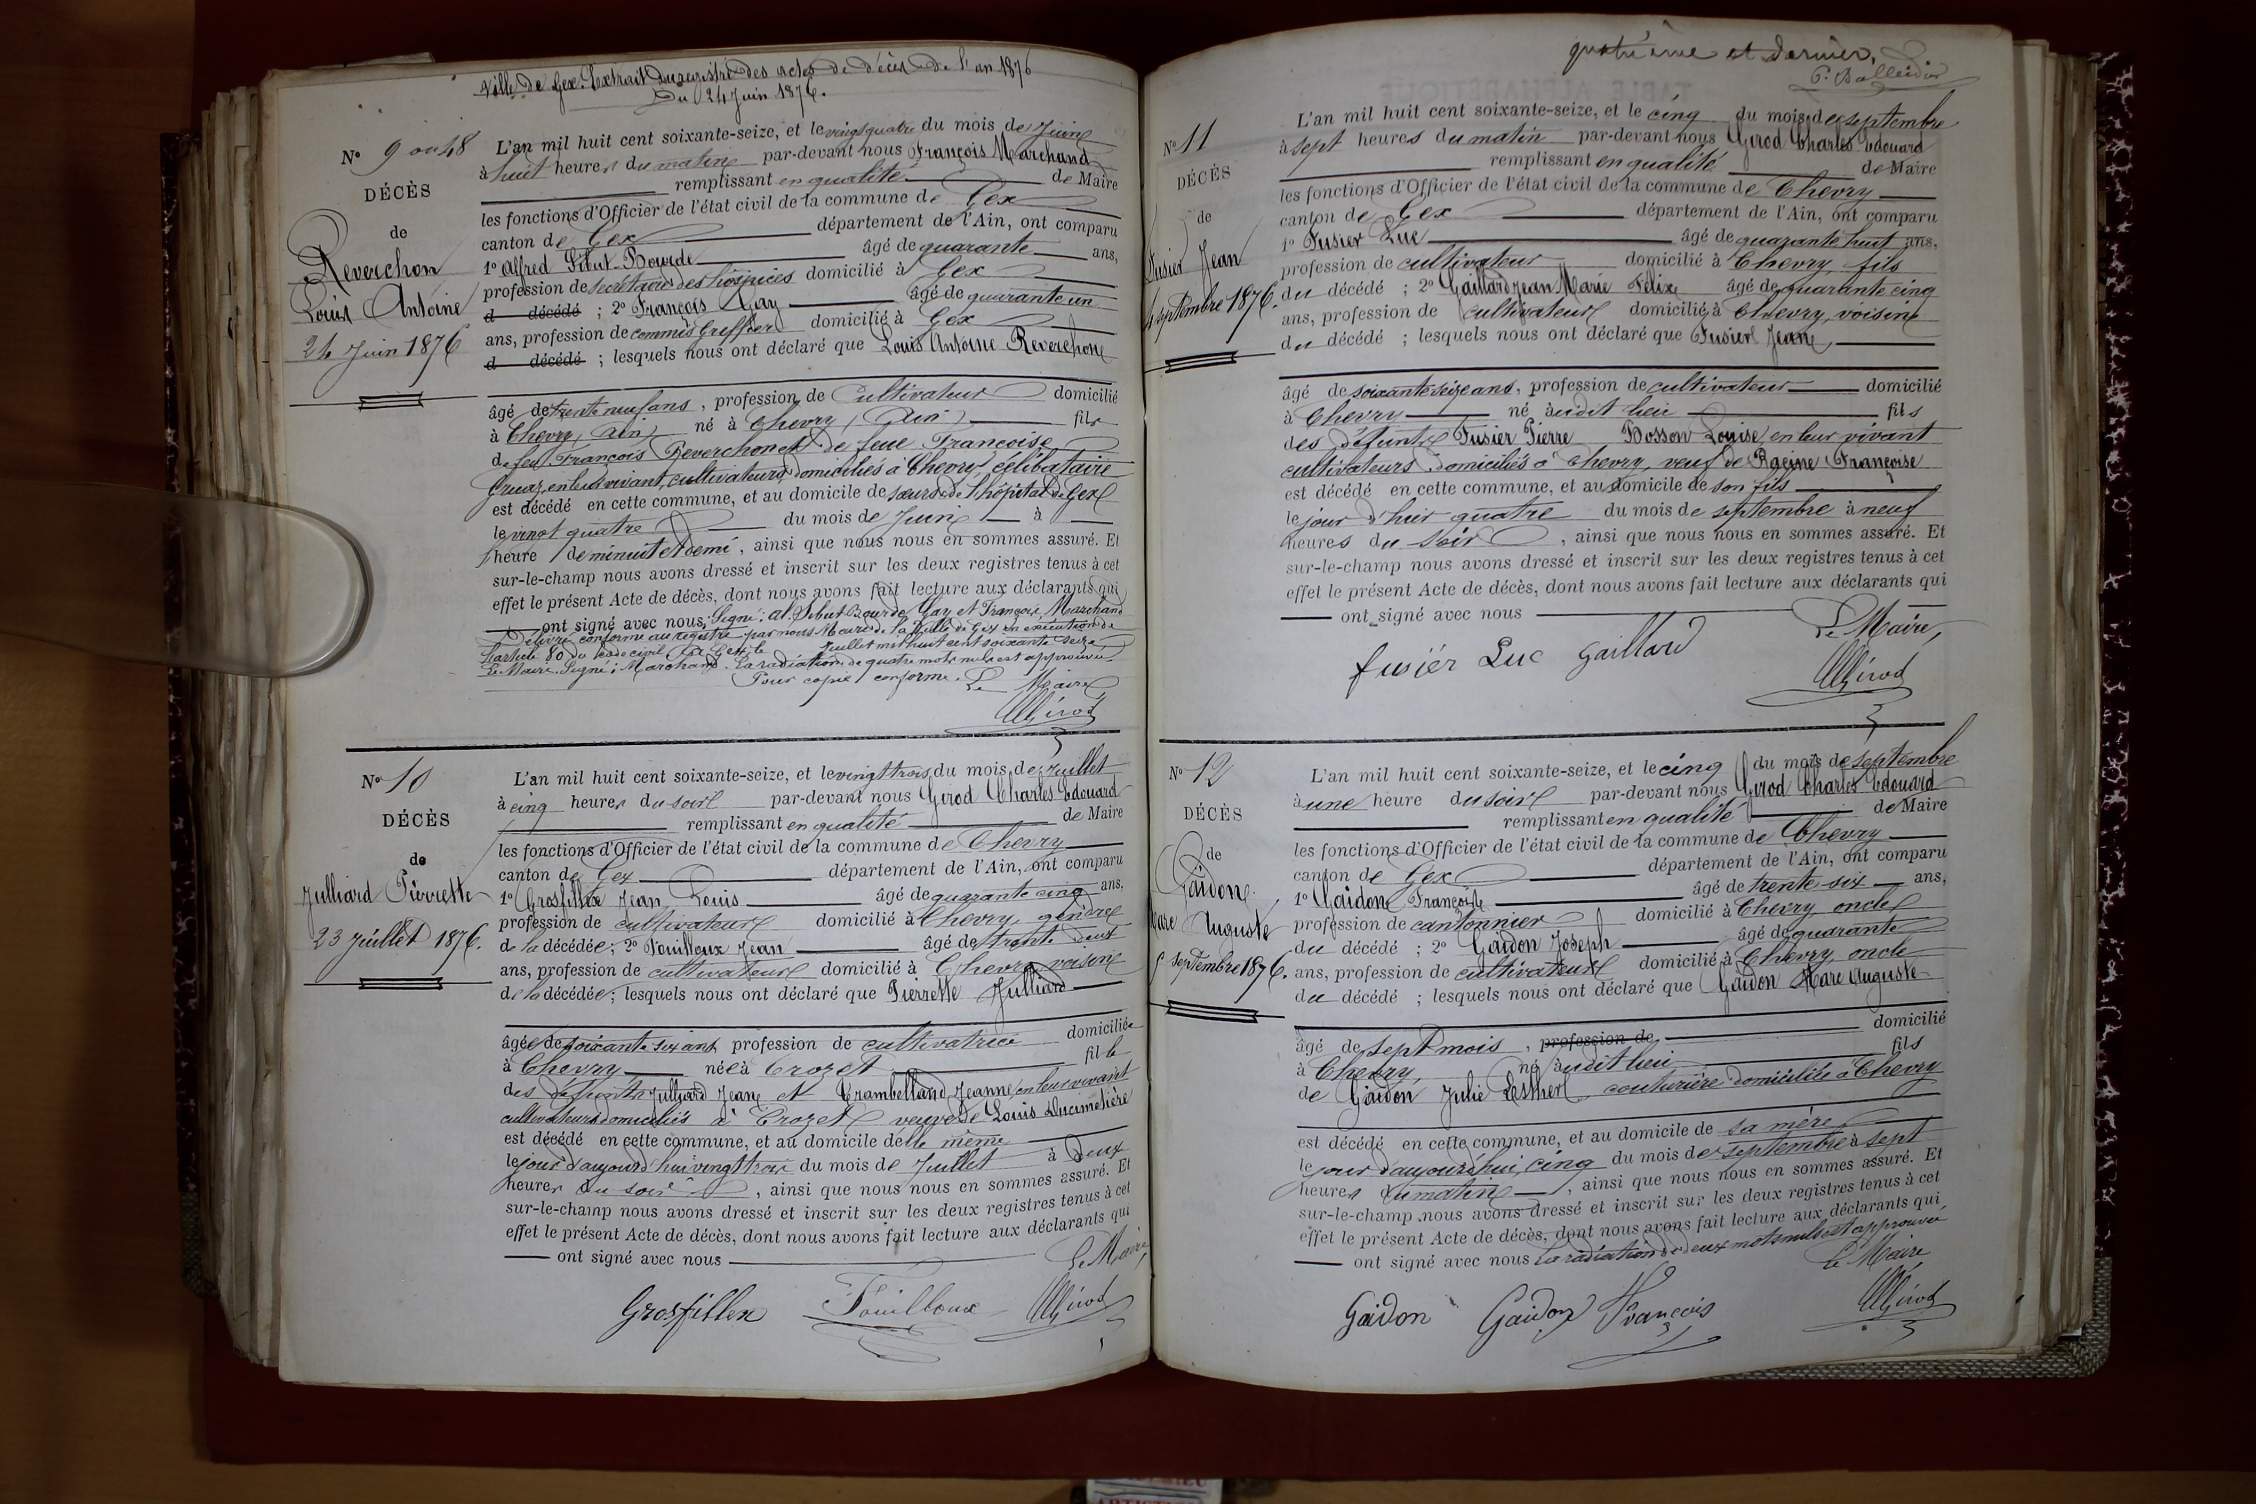 Ville de Gex. Extrait du registre des actes de décès de l'an 1876
Du 24 Juin 1876.
N° 9 ou 48
DÉCÈS
de
Reverchon
Louis Antoine
24 Juin 1876
L'an mil huit cent soixante-seize, et le vingt quatre du mois de Juin
à huit heures du matin par-devant nous François Marchand
remplissant en qualité de Maire
les fonctions d'Officier de l'état civil de la commune de Gex
canton de Gex département de l'Ain, ont comparu
1° Alfred Sibut-Bourde âgé de quarante ans,
profession de secrétaire des hospices domicilié à Gex
d décédé ; 2° François Gay âgé de quarante un
ans, profession de commis Greffier domicilié à Gex
d décédé ; lesquels nous ont déclaré que Louis Antoine Reverchon
âgé de trente neuf ans, profession de Cultivateur domicilié
à Chevry (Ain) né à Chevry (Ain) fils
de feu François Reverchon et de feue Françoise
Gruaz, en leur vivant, cultivateurs, domiciliés à Chevry, célibataire
est décédé en cette commune, et au domicile de sœurs de l'hôpital de Gex
le vingt quatre du mois de Juin à
heure de minuit et demi, ainsi que nous nous en sommes assuré. Et
sur-le-champ nous avons dressé et inscrit sur les deux registres tenus à cet
effet le présent Acte de décès, dont nous avons fait lecture aux déclarants qui
ont signé avec nous. Signé: Al. Sibut Bourde, Gay et François Marchand
Délivré conforme au registre par nous Maire de la Ville de Gex en exécution de
l'article 80 du code civil. Gex le Juillet mil huit cent soixante seize
Le Maire. Signé: Marchand. La radiation de quatre mots nuls est approuvée.
Pour copie conforme. Le Maire
Girod
N° 10
DÉCÈS
de
Julliard Pierrette
23 Juillet 1876.
L'an mil huit cent soixante-seize, et le vingt trois du mois de Juillet
à cinq heures du soir par-devant nous Girod Charles Edouard
remplissant en qualité de Maire
les fonctions d'Officier de l'état civil de la commune de Chevry
canton de Gex département de l'Ain, ont comparu
1° Grosfillex Jean Louis âgé de quarante cinq ans,
profession de cultivateur domicilié à Chevry, gendre
de la décédée ; 2° Fouilloux Jean âgé de trente deux
ans, profession de cultivateur domicilié à Chevry voisin
de la décédée ; lesquels nous ont déclaré que Pierrette Julliard
âgée de soixante six ans profession de cultivatrice domiciliée
à Chevry née à Crozet fille
des défunts Julliard Jean et Crambelland Jeanne, en leur vivant
cultivateurs domiciliés à Crozet veuve de Louis Ducimetière
est décédé en cette commune, et au domicile d'elle même
le jour d'aujourd'hui vingt trois du mois de Juillet à deux
heures du soir, ainsi que nous nous en sommes assuré. Et
sur-le-champ nous avons dressé et inscrit sur les deux registres tenus à cet
effet le présent Acte de décès, dont nous avons fait lecture aux déclarants qui
ont signé avec nous
Le Maire,
Grosfillex Fouilloux Girod
quatrième et dernier,
N° 11
DÉCÈS
de
Fusier Jean
4 septembre 1876.
L'an mil huit cent soixante-seize, et le cinq du mois de septembre
à sept heures du matin par-devant nous Girod Charles Edouard
remplissant en qualité de Maire
les fonctions d'Officier de l'état civil de la commune de Chevry
canton de Gex département de l'Ain, ont comparu
1° Fusier Luc âgé de quarante huit ans,
profession de cultivateur domicilié à Chevry, fils
du décédé ; 2° Gaillard Jean Marie Félix âgé de quarante cinq
ans, profession de cultivateur domicilié à Chevry, voisin
du décédé ; lesquels nous ont déclaré que Fusier Jean,
âgé de soixante seize ans, profession de cultivateur domicilié
à Chevry né audit lieu fils
des défunts Fusier Pierre Bosson Louise, en leur vivant
cultivateurs domiciliés à Chevry, veuf de Racine Françoise
est décédé en cette commune, et au domicile de son fils
le jour d'hier quatre du mois de septembre à neuf
heures du soir, ainsi que nous nous en sommes assuré. Et
sur-le-champ nous avons dressé et inscrit sur les deux registres tenus à cet
effet le présent Acte de décès, dont nous avons fait lecture aux déclarants qui
ont signé avec nous
Le Maire,
fusiér Luc Gaillard Girod
N° 12
DÉCÈS
de
Gaidon
Marc Auguste
5 septembre 1876.
L'an mil huit cent soixante-seize, et le cinq du mois de septembre
à une heure du soir par-devant nous Girod Charles Edouard
remplissant en qualité de Maire
les fonctions d'Officier de l'état civil de la commune de Chevry
canton de Gex département de l'Ain, ont comparu
1° Gaidon François âgé de trente six ans,
profession de cantonnier domicilié à Chevry oncle
du décédé ; 2° Gaidon Joseph âgé de quarante
ans, profession de cultivateur domicilié à Chevry, oncle
du décédé ; lesquels nous ont déclaré que Gaidon Marc Auguste
âgé de sept mois, profession de domicilié
à Chevry, né audit lieu fils
de Gaidon Julie Esther couturière domiciliée à Chevry
est décédé en cette commune, et au domicile de sa mère
le jour d'aujourd'hui, cinq du mois de septembre à sept
heures du matin, ainsi que nous nous en sommes assuré. Et
sur-le-champ nous avons dressé et inscrit sur les deux registres tenus à cet
effet le présent Acte de décès, dont nous avons fait lecture aux déclarants qui
ont signé avec nous La radiation de deux mots nuls est approuvée
Le Maire,
Gaidon Gaidon François Girod